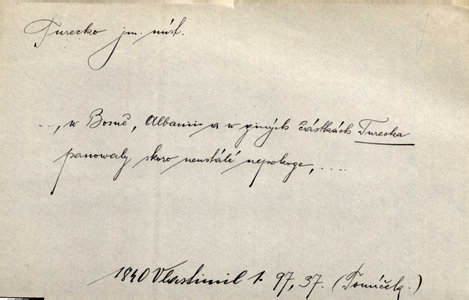 Turecko jm. míst.
..., w Bosně, Albanii a w giných částkách Turecka
panowaly skoro neustálé nepokoge, ....
1840 Vlastimil 1. 97, 37. (Tomíček.)